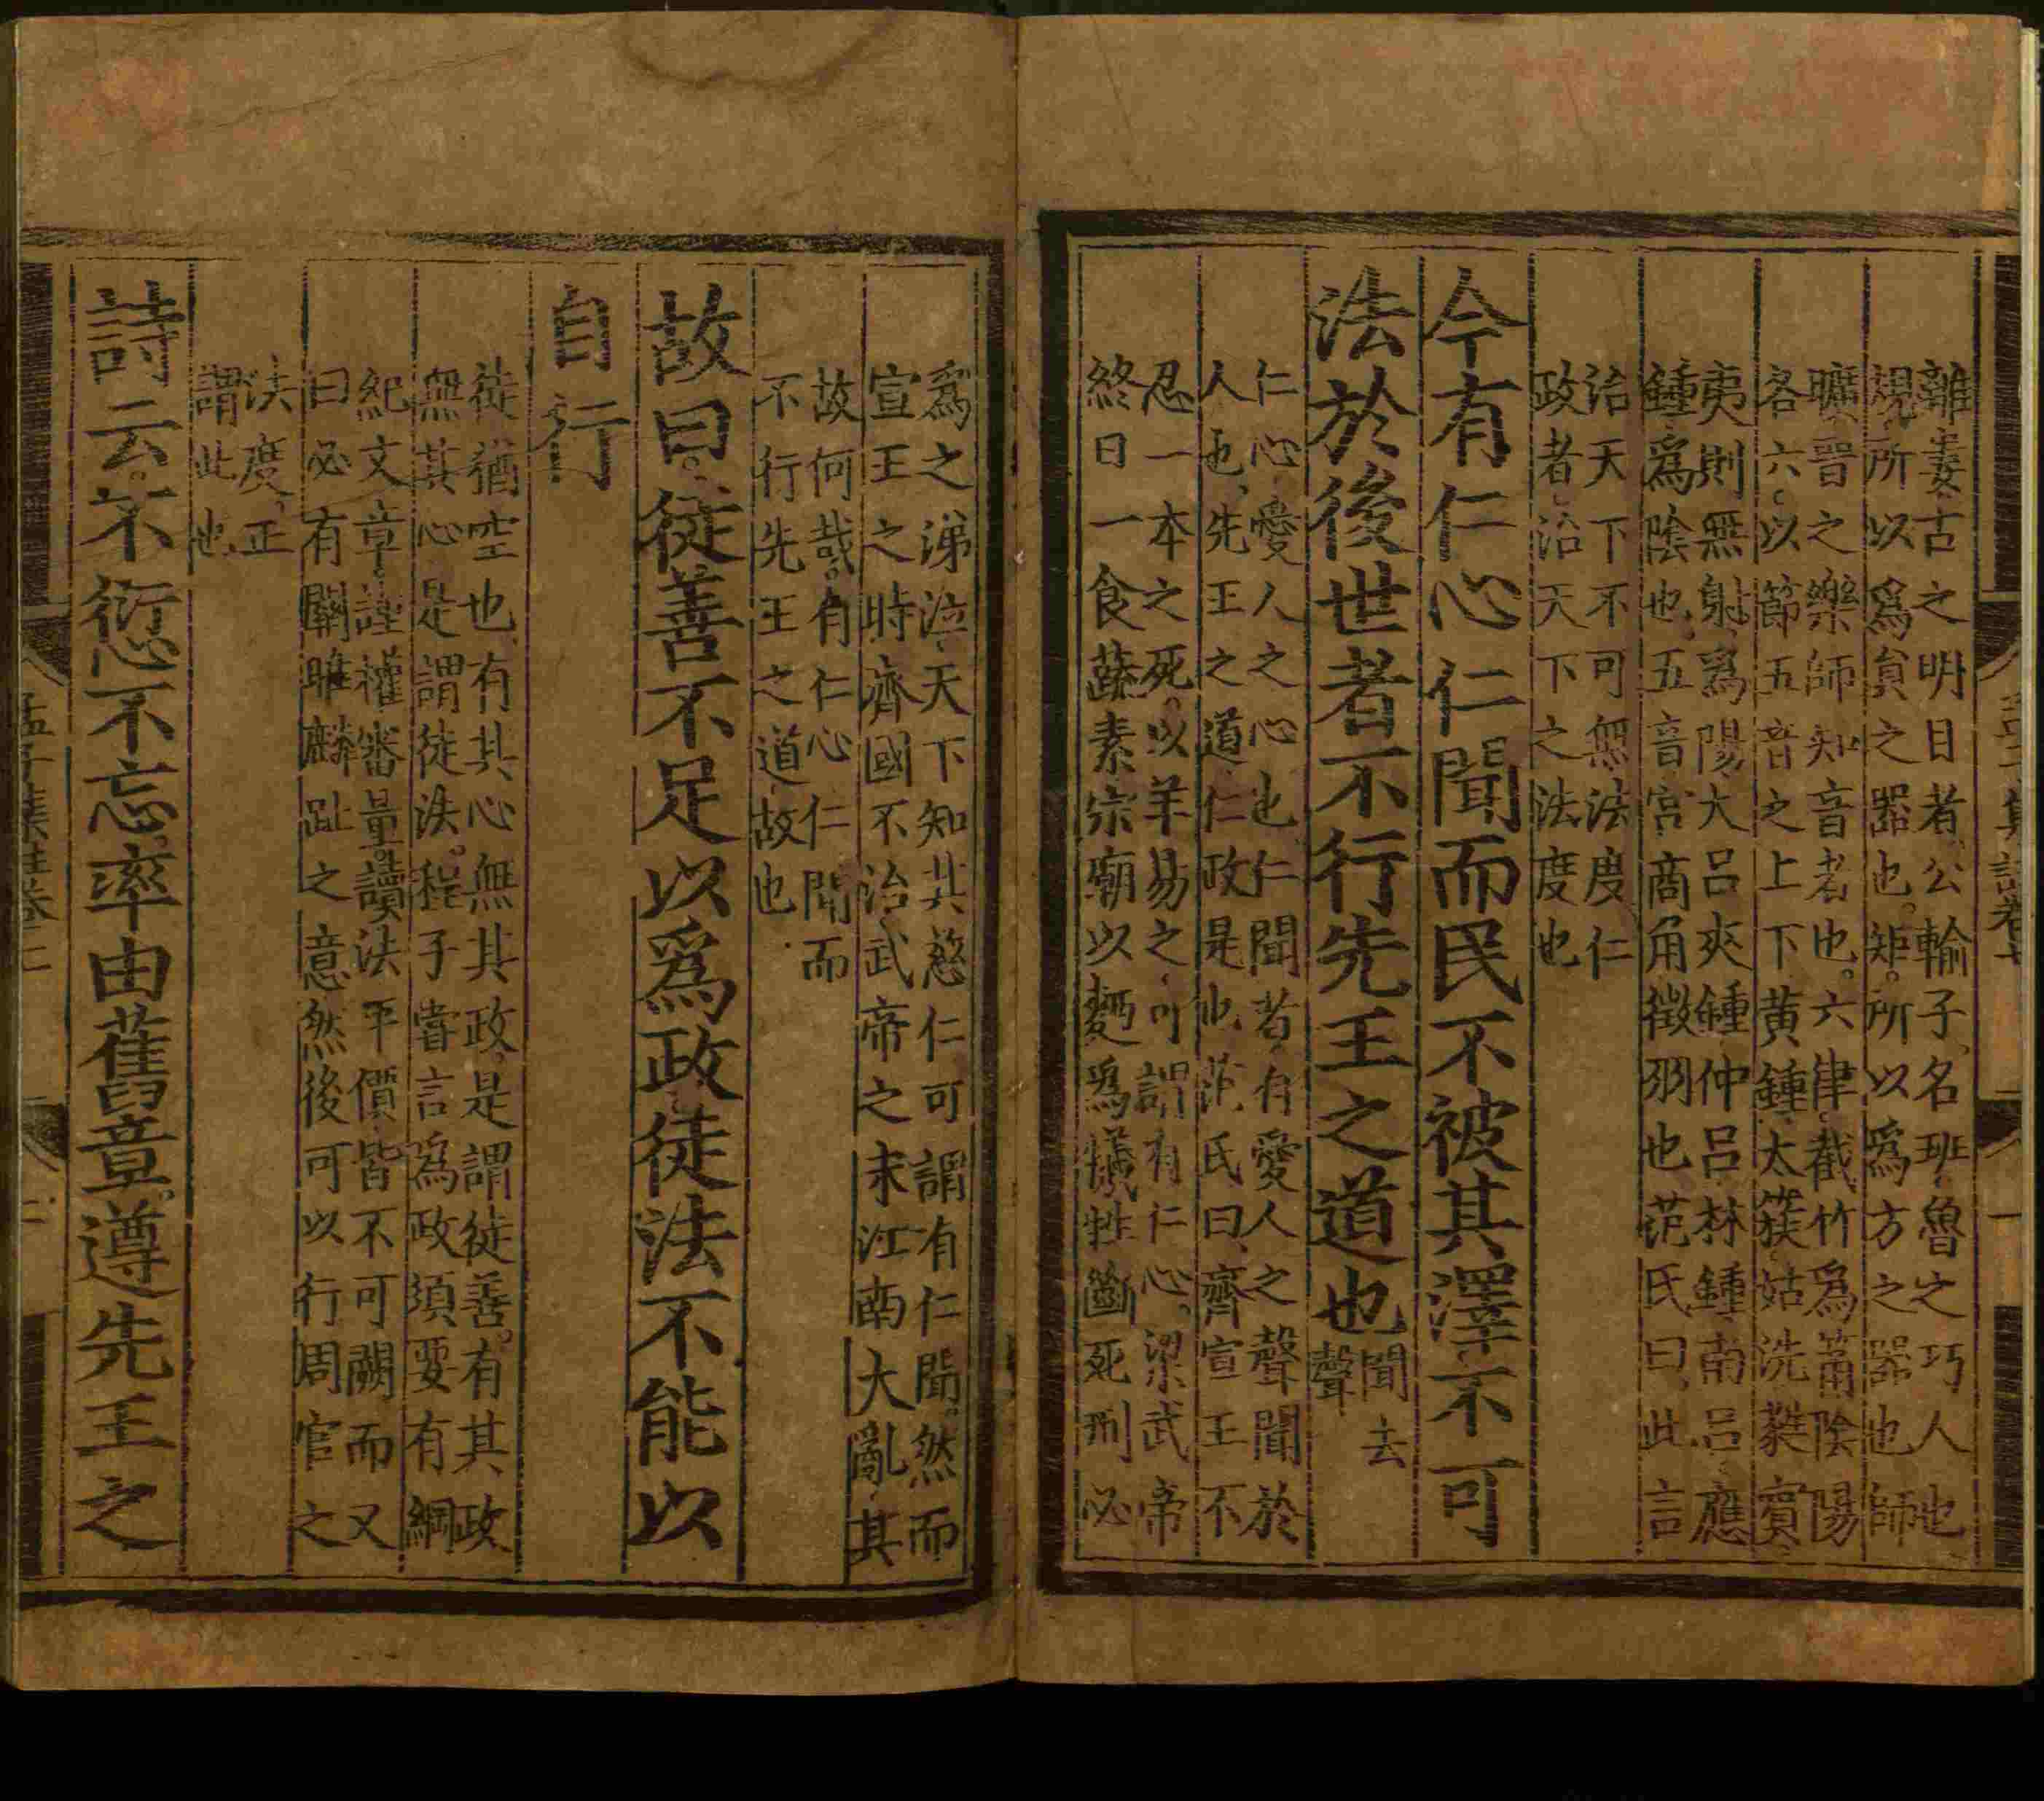 離婁古之明目者公輸子名班魯之巧人也
規所以爲員之器也矩所以爲方之器也師
曠晉之樂師知音者也六律截竹爲筩陰陽
各六以節五音之上下黄鍾太簇姑洗蕤賓
夷則無射爲陽大吕夾鍾仲吕林鍾南吕應
鍾爲陰也五音宮商角徵羽也范氏曰此言
治天下不可無法度仁
政者治天下之法度也
今有仁心仁聞而民不被其澤不可
法於後世者不行先王之道也聞去聲
仁心愛人之心也仁聞者有愛人之聲聞於
人也先王之道仁政是也范氏曰齊宣王不
忍一本之死以羊易之可謂有仁心梁武帝
終日一食蔬素宗廟以麪爲犧牲斷死刑必
爲之涕泣天下知其慈仁可謂有仁聞然而
宣王之時齊國不治武帝之末江南大亂其
故何哉有仁心仁聞而
不行先王之道故也
故曰徒善不足以爲政徒法不能以
自行
徒猶空也有其心無其政是謂徒善有其政
無其心是謂徒法程子嘗言爲政須要有綱
紀文章謹權審量讀法平價皆不可闕而又
曰必有關雎麟趾之意然後可以行周官之
法度正
謂此也
詩云不愆不忘率由舊章遵先王之
孟子集註卷
二